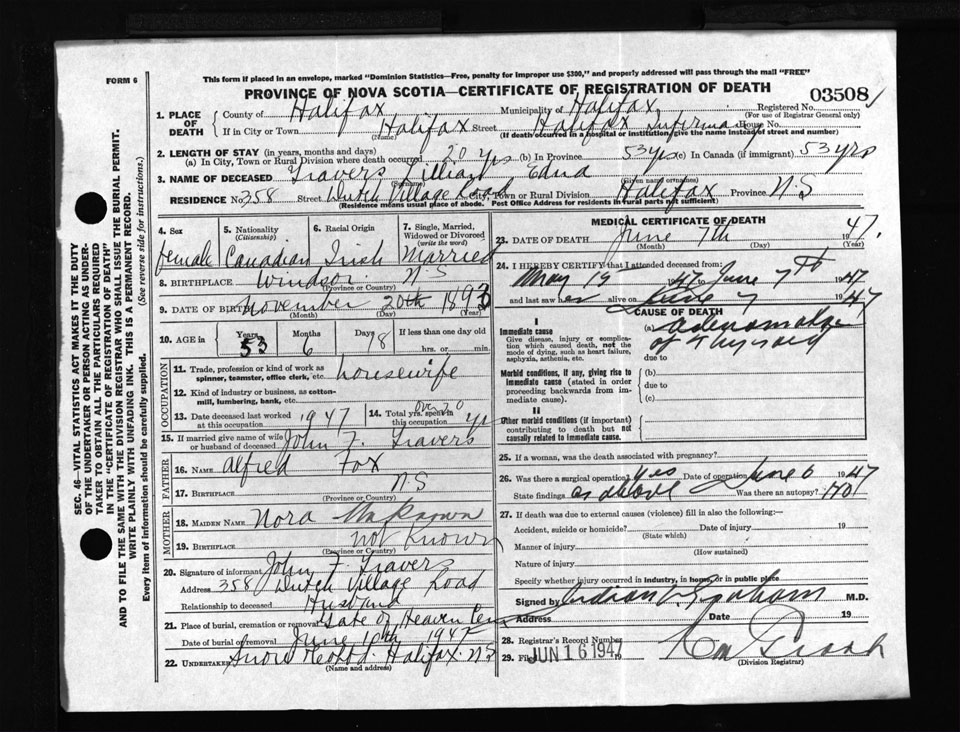 FORM 6
This form if placed in an envelope, marked "Dominion Statistics—Free, penalty for improper use $300," and properly addressed will pass through the mail "FREE"
PROVINCE OF NOVA SCOTIA—CERTIFICATE OF REGISTRATION OF DEATH
03508
1. PLACE OF DEATH
County of Halifax Municipality of Halifax Registered No.
(For use of Registrar General only)
If in City or Town Halifax Street Halifax Infirmary House No.
(Name) (If death occurred in a hospital or institution, give the name instead of street and number)
2. LENGTH OF STAY (in years, months and days)
(a) In City, Town or Rural Division where death occurred 20 yrs (b) In Province 53 yrs (c) In Canada (if immigrant) 53 yrs
3. NAME OF DECEASED Travers Lillian Edna
(Surname) (Given name or names)
RESIDENCE No 358 Street Dutch Village Road City, Town or Rural Division Halifax Province N.S
(Residence means usual place of abode. Post Office Address for residents in rural parts not sufficient)
4. Sex
female
5. Nationality (Citizenship)
Canadian
6. Racial Origin
Irish
7. Single, Married, Widowed or Divorced (write the word)
Married
8. BIRTHPLACE Windsor N S
(Province or Country)
9. DATE OF BIRTH November 20th 1893
(Month) (Day) (Year)
10. AGE in
Years Months Days If less than one day old
53 6 18 hrs. or min.
OCCUPATION
11. Trade, profession or kind of work as spinner, teamster, office clerk, etc. housewife
12. Kind of industry or business, as cotton-mill, lumbering, bank, etc.
13. Date deceased last worked at this occupation 1947
14. Total yrs. spent in this occupation over 20 yrs
15. If married give name of wife or husband of deceased John F. Travers
FATHER
16. NAME Alfred Fox
17. BIRTHPLACE N S
(Province or Country)
MOTHER
18. MAIDEN NAME Nora Unknown
19. BIRTHPLACE not Known
(Province or Country)
20. Signature of informant John F Travers
Address 358 Dutch Village Road
Relationship to deceased Husband
21. Place of burial, cremation or removal Gate of Heaven Cem
Date of burial or removal June 10th 1947
22. UNDERTAKER Snow & Co Ltd. Halifax N.S
(Name and address)
MEDICAL CERTIFICATE OF DEATH
23. DATE OF DEATH June 7th 1947.
(Month) (Day) (Year)
24. I HEREBY CERTIFY that I attended deceased from
May 15 1947 to June 7th 1947
and last saw her alive on June 7 1947
CAUSE OF DEATH
I
Immediate cause
Give disease, injury or complication which caused death, not the mode of dying, such as heart failure, asphyxia, asthenia, etc.
(a) of Thyroid
due to
Morbid conditions, if any, giving rise to immediate cause (stated in order proceeding backwards from immediate cause).
(b)
due to
(c)
II
Other morbid conditions (if important) contributing to death but not causally related to immediate cause.
25. If a woman, was the death associated with pregnancy?
26. Was there a surgical operation? Yes Date of operation June 6 1947
State findings as above Was there an autopsy? No
27. If death was due to external causes (violence) fill in also the following:—
Accident, suicide or homicide? Date of injury 19
(State which)
Manner of injury
(How sustained)
Nature of injury
Specify whether injury occurred in industry, in home, or in public place
Signed by Graham M.D.
Address Date 19
28. Registrar's Record Number
29. Filed JUN 16 1947
(Division Registrar)
SEC. 46—VITAL STATISTICS ACT MAKES IT THE DUTY
OF THE UNDERTAKER OR PERSON ACTING AS UNDERTAKER TO OBTAIN ALL THE PARTICULARS REQUIRED
IN THE "CERTIFICATE OF REGISTRATION OF DEATH"
AND TO FILE THE SAME WITH THE DIVISION REGISTRAR WHO SHALL ISSUE THE BURIAL PERMIT.
WRITE PLAINLY WITH UNFADING INK. THIS IS A PERMANENT RECORD.
Every item of Information should be carefully supplied. (See reverse side for instructions.)